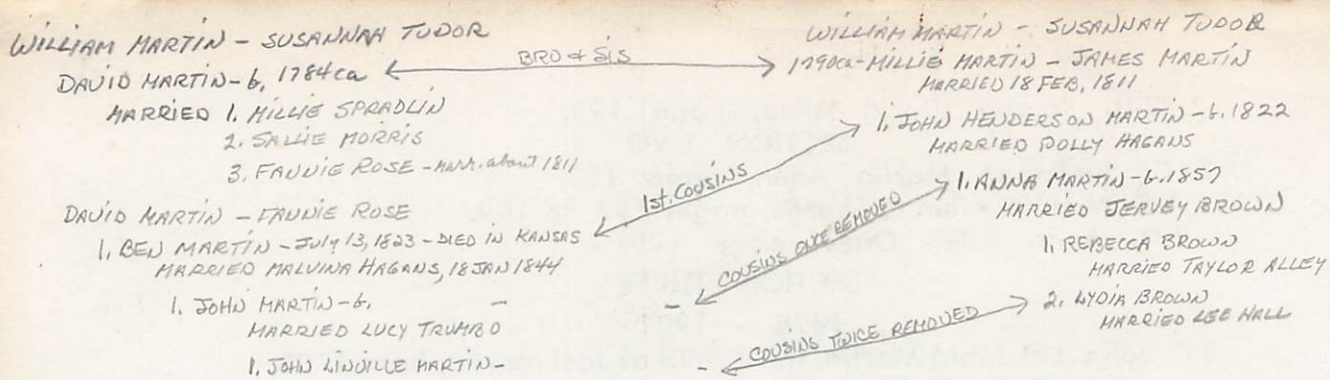 WILLIAM MARTIN - SUSANNAH TUDOR
DAVID MARTIN - b, 1784ca
MARRIED 1. MILLIE SPRADLIN
2. SALLIE MORRIS
3. FANNIE ROSE - marr. about 1811
DAVID MARTIN - FANNIE ROSE
1. BEN MARTIN - July 13, 1823 - DIED IN KANSAS
MARRIED MALVINA HAGANS, 18 JAN 1844
1. JOHN MARTIN - b, -
MARRIED LUCY TRUMBO
1. JOHN LINVILLE MARTIN -
BRO & SIS
1st. COUSINS
- COUSINS ONCE REMOVED
- COUSINS TWICE REMOVED
WILLIAM MARTIN - SUSANNAH TUDOR
1790ca - MILLIE MARTIN - JAMES MARTIN
MARRIED 18 FEB, 1811
1. JOHN HENDERSON MARTIN - b. 1822
MARRIED POLLY HAGANS
1. ANNA MARTIN - b. 1857
MARRIED JERVEY BROWN
1. REBECCA BROWN
MARRIED TAYLOR ALLEY
2. LYDIA BROWN
MARRIED LEE HALL